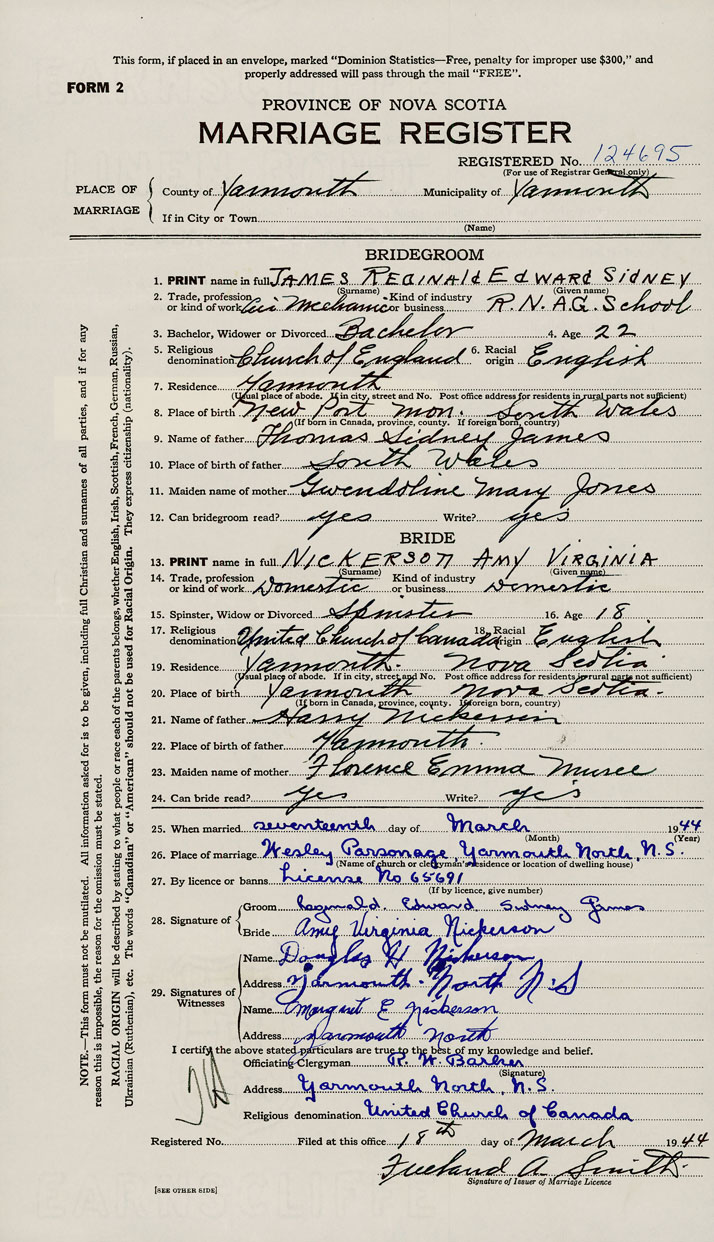 This form, if placed in an envelope, marked "Dominion Statistics—Free, penalty for improper use $300," and
properly addressed will pass through the mail "FREE".
FORM 2
PROVINCE OF NOVA SCOTIA
MARRIAGE REGISTER
REGISTERED No. 124695
(For use of Registrar General only)
PLACE OF MARRIAGE
County of Yarmouth Municipality of Yarmouth
If in City or Town
(Name)
BRIDEGROOM
1. PRINT name in full JAMES REGINALD EDWARD SIDNEY
(Surname) (Given name)
2. Trade, profession or kind of work Air Mechanic Kind of industry or business R.N.A.G. School
3. Bachelor, Widower or Divorced Bachelor 4. Age 22
5. Religious denomination Church of England 6. Racial origin English
7. Residence Yarmouth
(Usual place of abode. If in city, street and No. Post office address for residents in rural parts not sufficient)
8. Place of birth New Port Mon. South Wales
(If born in Canada, province, county. If foreign born, country)
9. Name of father Thomas Sidney James
10. Place of birth of father South Wales
11. Maiden name of mother Gwendoline Mary Jones
12. Can bridegroom read? yes Write? yes
BRIDE
13. PRINT name in full NICKERSON AMY VIRGINIA
(Surname) (Given name)
14. Trade, profession or kind of work Domestic Kind of industry or business Domestic
15. Spinster, Widow or Divorced Spinster 16. Age 18
17. Religious denomination United Church of Canada 18. Racial origin English
19. Residence Yarmouth. Nova Scotia
(Usual place of abode. If in city, street and No. Post office address for residents in rural parts not sufficient)
20. Place of birth Yarmouth Nova Scotia.
(If born in Canada, province, county. If foreign born, country)
21. Name of father Harry Nickerson
22. Place of birth of father Yarmouth.
23. Maiden name of mother Florence Emma
24. Can bride read? yes Write? yes
25. When married seventeenth day of March 1944
(Month) (Year)
26. Place of marriage Wesley Parsonage, Yarmouth North, N.S.
(Name of church or clergyman's residence or location of dwelling house)
27. By licence or banns License No 65691
(If by licence, give number)
28. Signature of
Groom Reginald. Edward Sidney James
Bride Amy Virginia Nickerson
29. Signatures of Witnesses
Name Douglas H Nickerson
Address Yarmouth. North N.S
Name Margaret E Nickerson
Address Yarmouth North
I certify the above stated particulars are true to the best of my knowledge and belief.
Officiating Clergyman R. W. Barker
(Signature)
Address Yarmouth North, N.S.
Religious denomination United Church of Canada
Registered No. Filed at this office 18th day of March 1944
Freeland A. Smith
Signature of Issuer of Marriage Licence
[SEE OTHER SIDE]
NOTE.—This form must not be mutilated. All information asked for is to be given, including full Christian and surnames of all parties, and if for any
reason this is impossible, the reason for the omission must be stated.
RACIAL ORIGIN will be described by stating to what people or race each of the parents belongs, whether English, Irish, Scottish, French, German, Russian,
Ukrainian (Ruthenian), etc. The words "Canadian" or "American" should not be used for Racial Origin. They express citizenship (nationality).